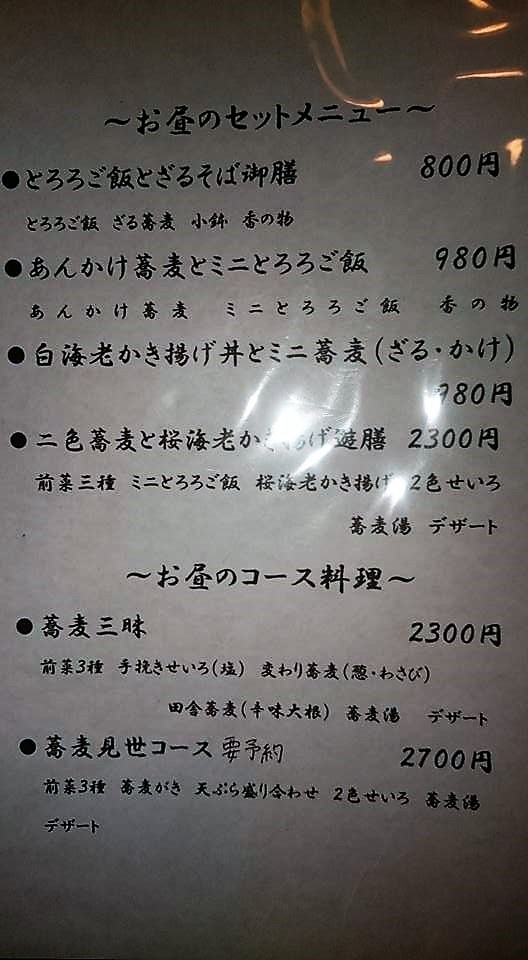 ～お昼のセットメニュー～
●とろろご飯とざるそば御膳 800円
とろろご飯 ざる蕎麦 小鉢 香の物
●あんかけ蕎麦とミニとろろご飯 980円
あんかけ蕎麦 ミニとろろご飯 香の物
●白海老かき揚げ丼とミニ蕎麦(ざる・かけ)
980円
●二色蕎麦と桜海老かき揚げ遊膳 2300円
前菜三種 ミニとろろご飯 桜海老かき揚げ 2色せいろ
蕎麦湯 デザート
～お昼のコース料理～
●蕎麦三昧 2300円
前菜3種 手挽きせいろ(塩) 変わり蕎麦(葱・わさび)
田舎蕎麦(辛味大根) 蕎麦湯 デザート
●蕎麦見世コース 要予約 2700円
前菜3種 蕎麦がき 天ぷら盛り合わせ 2色せいろ 蕎麦湯
デザート